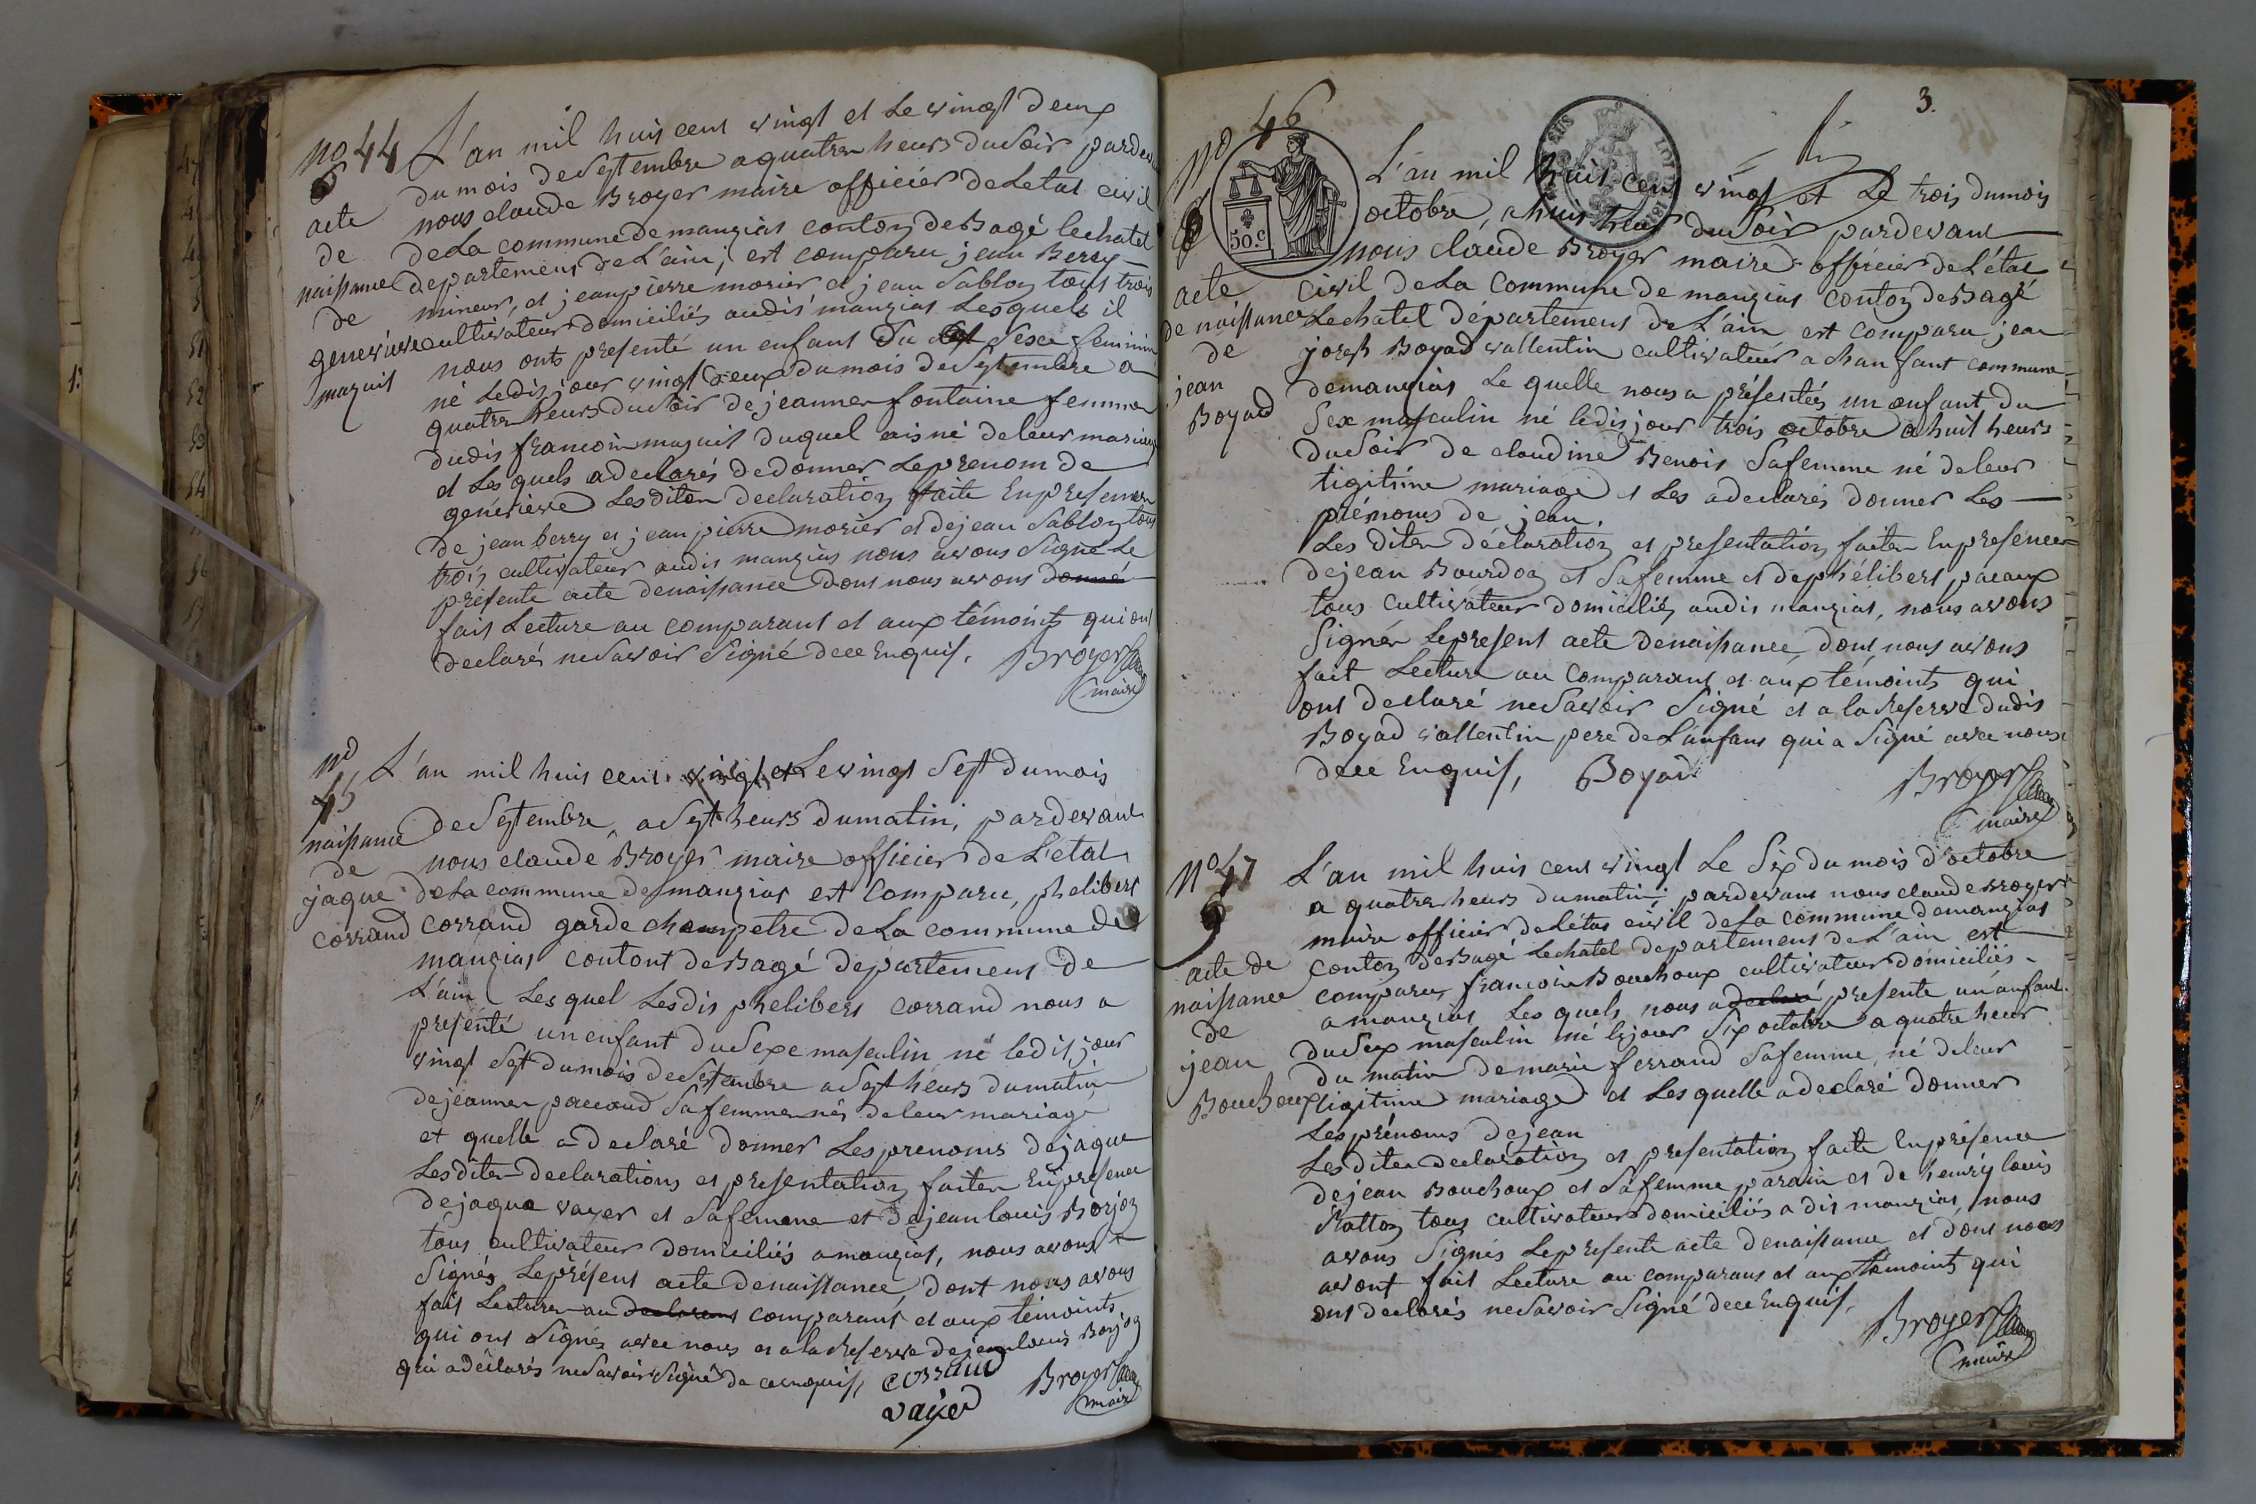 No 44
6
acte
de
naissance
de
geneviève
maguit
L'an mil huit cent vingt et Le vingt deux
du mois de Septembre a quatre heurs du Soir pardev
nous claude Broyer maire officier de Letat civil
de La commune de manziat conton de Bagé lechatel
departement de L'ain, est comparu jean Berry
mineur, et jeanpierre morier et jean Sablon tous trois
cultivateur domiciliés audit manziat Lesquels il
nous ont presenté un enfant du Sexe feminin
né Ledit jour vingt deux du mois de Septembre a
quatre heurs du Soir de jeanne fontaine femme
dudit francois maguit duquel né de leur mariage
et Les quels a declarés de donner Le prenom de
genevieve Les dite declaration faite En presence
de jean berry et jean pierre morier et de jean Sablon tous
trois cultivateur audit manziat nous avons Signé Le
presente acte de naissance dont nous avons donné
fait Lecture au comparant et aux témoints qui ont
declarés ne Savoir Signé de ce Enquis. Broyer
maire
No
45
naissance
de
jaque
corrand
L'an mil huit cent vingt et Le vingt Sept du mois
de Septembre a Sept heurs du matin, pardevant
nous claude Broyer maire officier de L'état
de La commune de manziat est Comparu, phelibert
corrand garde champetre de La commune de
manziat contont de Bagé departement de
L'ain Les quel Lesdit phelibert corrand nous a
presenté un enfant du Sexe masculin né ledit jour
vingt Sept du mois de Septembre a Sept heurs du matin
de jeanne paccoud Sa femme nés de leur mariage
et quelle a declaré donner Les prenoms de jaque
Les dite declarations et presentation faite En presence
de jaque vayer et Sa femme et de jean louis Borjon
tous cultivateur domiciliés a manziat, nous avons
Signés Le présent acte de naissance, dont nous avons
fait Lecture au declarant comparant et aux témoints
qui ont Signés avec nous et a la Reserve de jean louis Borjon
qui a déclarés ne Savoir Signé de ce enquis, corrand
vayer
Broyer
maire
3.
No 46
8
50.c
acte
de naissance
de
jean
Boyad
L'an mil huit cent vingt et Le trois du mois
octobre, a huit heurs du Soir pardevant
nous claude Broyer maire officier de L'état
civil de La Commune de manziat conton de Bagé
Lechatel département de L'ain est comparu jean
joseph Boyad vallentin cultivateur a chanfant commune
de manziat Le quelle nous a présentés un enfant du
Sex masculin né ledit jour trois octobre a huit heurs
du Soir de claudine Benoit Sa femme né de leur
ligitime mariage et Les a declarés donner Les
prénoms de jean.
Les dite déclaration et presentation faite En presence
de jean Bourdon et Sa femme et de phélibert pacaux
tous Cultivateur domiciliés audit manziat, nous avons
Signér Le present acte de naissance, dont nous avons
fait Lecture au comparant et aux témoints qui
ont declaré ne Savoir Signé et a la Reserve dudit
Boyad vallentin pere de L'anfant qui a Signé avec nous
de ce Enquis, Boyad
Broyer
maire
No 47
9
acte de
naissance
de
jean
Bouchoux
L'an mil huit cent vingt Le Six du mois d'octobre
a quatre heurs du matin, pardevant nous claude Broyer
maire officier de Letat civil de La commune de manziat
conton de Bagé Lechatel departement de L'ain est
comparu, francois Bouchoux cultivateur domiciliés
a manziat Les quels nous a declaré presente un anfant
du Sex masculin né le jour Six octobre a quatre heur
du matin de marie ferrand Sa femme né de leur
ligitime mariage et Les quelle a declaré donner
Les prénoms de jean
Les dite declaration et presentation faite En présence
de jean Bouchoux et Sa femme parain et de henriy louis
Ratton tous cultivateur domiciliés a dit manziat, nous
avons Signés Le presente acte de naissance et dont nous
avont fait Lecture au comparant et aux témoints qui
ont declarés ne Savoir Signé de ce Enquis,
Broyer
maire